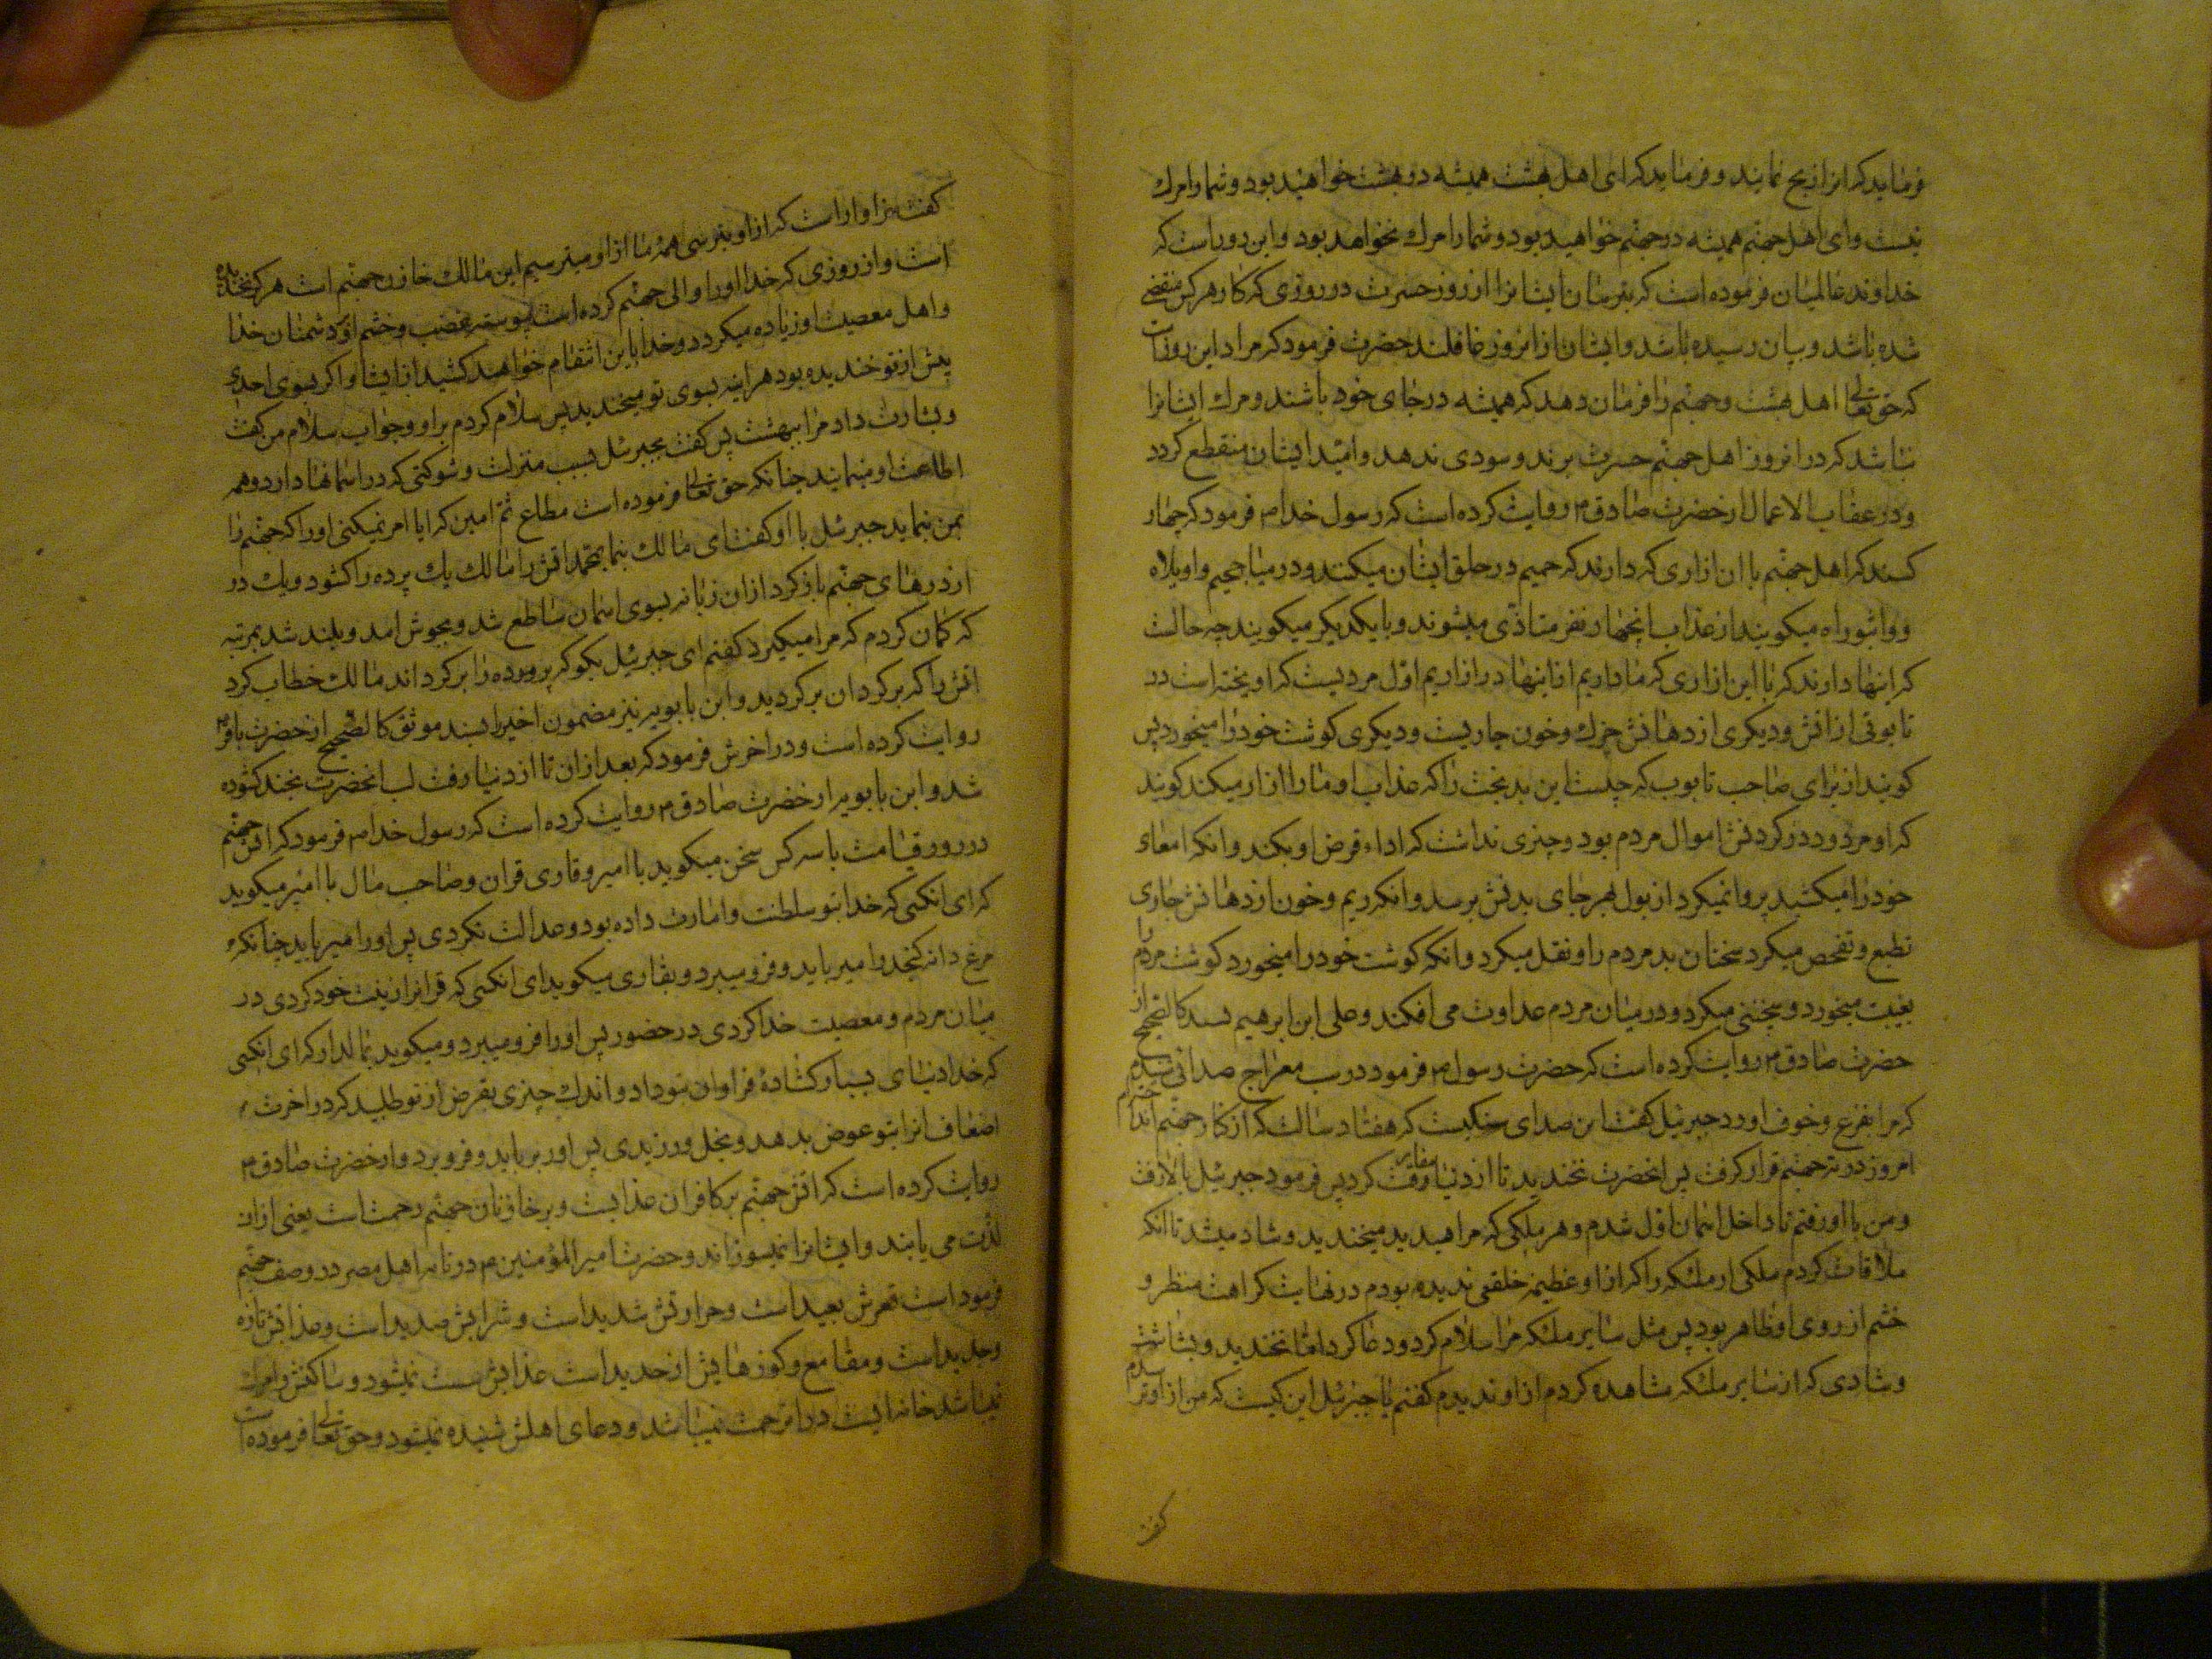 فرماید که انرا ذبح نمایند و فرماید که ای اهل بهشت همیشه در بهشت خواهید بود و شما را مرك
نیست و ای اهل جهنم همیشه در جهنم خواهید بود و شما را مرك نخواهد بود و این روز است که
خداوند عالمیان فرموده است که بترسان ایشانرا از روز حسرت در روزی که کار هر کس منقضی
شده باشد و بپایان رسیده باشد و ایشان از انروز غافلند حضرت فرمود که مراد این روز است
که حق تعالی اهل بهشت و جهنم را فرمان دهد که همیشه در جای خود باشند و مرك ایشانرا
نباشد که در انروز اهل جهنم حسرت برند و سودی ندهد و امید ایشان منقطع گردد
و در عقاب الاعمال از حضرت صادق م روایت کرده است که رسول خدا م فرمود که چهار
کسند که اهل جهنم با ان ازاری که دارند که حمیم در حلق ایشان میکنند و در میان جحیم واویلاه
و واثبوراه میکویند از عذاب اینچهار نفر متاذی میشوند و با یکدیکر میکویند چه حالت
که اینها دارند که با این ازاری که ما داریم از اینها در ازاریم اول مردیست که اویخته است در
تابوتی از اتش و دیکری از دهانش چرك و خون جاریست و دیکری کوشت خود را میخورد پس
کویند از برای صاحب تابوت که چیست این بدبخت را که عذاب او ما را ازار میکند کویند
که او مرد و در کردنش اموال مردم بود و چیزی نداشت که اداء قرض او بکند و انکه امعاء
خود را میکشید پروا نمیکرد از بول بهر جای بدنش برسد و انکه ریم و خون از دهانش جاری
تطبع و تفحص میکرد سخنان بد مردم را و نقل میکرد و انکه کوشت خود را میخورد کوشت مردم را
بغیبت میخورد و سخنچنی میکرد و در میان مردم عداوت می افکند و علی ابن ابرهیم بسند کالصحیح از
حضرت صادق م روایت کرده است که حضرت رسول م فرمود در شب معراج صدائی شنیدم
که مرا بفزع و خوف اورد جبرئیل کفت این صدای سنکیست که هفتاد سالست که از کنار جهنم انداختم
امروز در ته جهنم قرار کرفت پس انحضرت نخندید تا از دنیا مفارقت کرد پس فرمود جبرئیل بالا رفت
و من با او رفتم تا داخل اسمان اول شدم و هر ملکی که مرا میدید میخندید و شاد میشد تا انکه
ملاقات کردم ملکی از ملئکه را که از او عظیم خلقتی ندیده بودم در نهایت کراهت منظر و
خشم از روی او ظاهر بود پس مثل سایر ملئکه مرا سلام کرد و دعا کرد اما نخندید و بشاشت
و شادی که از سایر ملئکه مشاهده کردم از او ندیدم کفتم یا جبرئیل این کیست که من از او ترسیدم
کفت
کفت سزاوار است که از او بترسی همهٔ ما از او میترسیم این مالك خازن جهنم است هرکز نخندیده
است و از روزی که خدا او را والی جهنم کرده است پیوسته غضب و خشم او بر دشمنان خدا
و اهل معصیت او زیاده میکردد و خدا باین انتقام خواهد کشید از ایشان و اکر بسوی احدی
پیش از تو خندیده بود هراینه بسوی تو میخندید پس سلام کردم بر او و جواب سلام من کفت
و بشارت داد مرا ببهشت پس کفتم بجبرئیل بسبب منزلت و شوکتی که در اسمانها دارد و همه
اطاعت او مینمایند چنانکه حق تعالی فرموده است مطاع ثم امین که ایا امر نمیکنی او را که جهنم را
بمن بنماید جبرئیل با او کفت ای مالك بنما بمحمد اتش را مالك یك پرده را کشود و یك در
از درهای جهنم باز کرد از ان زبانه بسوی اسمان ساطع شد و بجوش امد و بلند شد بمرتبه
که کمان کردم که مرا میکیرد کفتم ای جبرئیل بکو که پرده را بر کرداند مالك خطاب کرد
اتش را که بر کرد ان بر کردید و ابن بابویه نیز مضمون اخیر را بسند موثق کالصحیح از حضرت باقر م
روایت کرده است و در اخرش فرمود که بعد از ان تا از دنیا رفت لب انحضرت بخنده کشوده
شد و ابن بابویه از حضرت صادق م روایت کرده است که رسول خدا م فرمود که اتش جهنم
در روز قیامت با سه کس سخن میکوید با امیر و قاری قران و صاحب مال با امیر میکوید
که ای انکسی که خدا بتو سلطنت و امارت داده بود و عدالت نکردی پس او را میرباید چنانکه
مرغ دانه کنجد را میرباید و فرو میبرد و بقاری میکوید ای انکسی که قرانرا زینت خود کردی در
میان مردم و معصیت خدا کردی در حضور پس او را فرو میبرد و میکوید بمالدار که ای انکسی
که خدا دنیای بسیار کشادهٔ فراوان بتو داد و اندك چیزی بقرض از تو طلبید که در اخرت
اضعاف انرا بتو عوض بدهد و بخل ورزیدی پس او را برباید و فرو برد و از حضرت صادق م
روایت کرده است که اتش جهنم بر کافران عذابست و بر خازنان جهنم رحمت است یعنی از ان
لذت می یابند و ایشانرا نمیسوزاند و حضرت امیر المؤمنین م در نامه اهل مصر در وصف جهنم
فرموده است قعرش بعید است و حرارتش شدید است و شرابش صدید است و عذابش تازه
و جدید است و مقامع و کرزهایش از حدید است عذابش سست نمیشود و ساکنش را مرك
نمیباشد خانه ایست در ان رحمت نمیباشد و دعای اهلش شنیده نمیشود و حق تعالی فرموده است